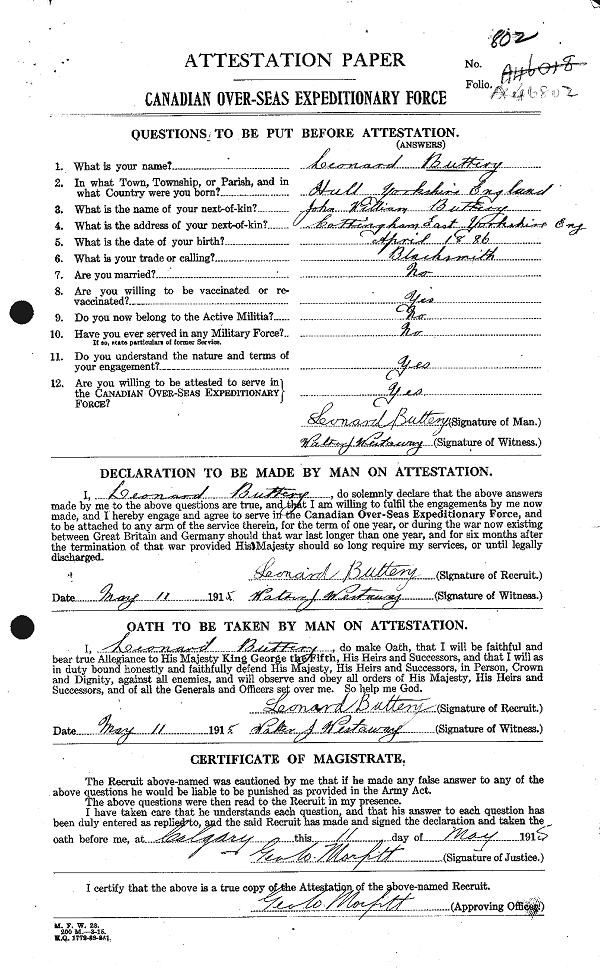 802
ATTESTATION PAPER
No. A46018
Folio.
CANADIAN OVER-SEAS EXPEDITIONARY FORCE
QUESTIONS TO BE PUT BEFORE ATTESTATION.
(ANSWERS)
1. What is your name? Leonard Buttery
2. In what Town, Township, or Parish, and in
what Country were you born? Hull Yorkshire England
3. What is the name of your next-of-kin? John William Buttery
4. What is the address of your next-of-kin? Cottingham East Yorkshire Eng
5. What is the date of your birth? April 1886
6. What is your trade or calling? Blacksmith
7. Are you married? No
8. Are you willing to be vaccinated or re-
vaccinated? Yes
9. Do you now belong to the Active Militia? No
10. Have you ever served in any Military Force? No
If so, state particulars of former Service.
11. Do you understand the nature and terms of
your engagement? Yes
12. Are you willing to be attested to serve in
the CANADIAN OVER-SEAS EXPEDITIONARY Yes
FORCE?
Leonard Buttery (Signature of Man.)
Walter J Westaway (Signature of Witness.)
DECLARATION TO BE MADE BY MAN ON ATTESTATION.
I, Leonard Buttery, do solemnly declare that the above answers
made by me to the above questions are true, and that I am willing to fulfil the engagements by me now
made, and I hereby engage and agree to serve in the Canadian Over-Seas Expeditionary Force, and
to be attached to any arm of the service therein, for the term of one year, or during the war now existing
between Great Britain and Germany should that war last longer than one year, and for six months after
the termination of that war provided His Majesty should so long require my services, or until legally
discharged.
Leonard Buttery (Signature of Recruit.)
Date May 11 1915 Walter J Westaway (Signature of Witness.)
OATH TO BE TAKEN BY MAN ON ATTESTATION.
I, Leonard Buttery, do make Oath, that I will be faithful and
bear true Allegiance to His Majesty King George the Fifth, His Heirs and Successors, and that I will as
in duty bound honestly and faithfully defend His Majesty, His Heirs and Successors, in Person, Crown
and Dignity, against all enemies, and will observe and obey all orders of His Majesty, His Heirs and
Successors, and of all the Generals and Officers set over me. So help me God.
Leonard Buttery (Signature of Recruit.)
Date May 11 1915 Walter J Westaway (Signature of Witness.)
CERTIFICATE OF MAGISTRATE.
The Recruit above-named was cautioned by me that if he made any false answer to any of the
above questions he would be liable to be punished as provided in the Army Act.
The above questions were then read to the Recruit in my presence.
I have taken care that he understands each question, and that his answer to each question has
been duly entered as replied to, and the said Recruit has made and signed the declaration and taken the
oath before me, at Calgary this 11 day of May 1915
Geo W. Morfitt (Signature of Justice.)
I certify that the above is a true copy of the Attestation of the above-named Recruit.
Geo W. Morfitt (Approving Officer)
M. F. W. 23.
200 M.—3-15.
H.Q. 1772-39-841.